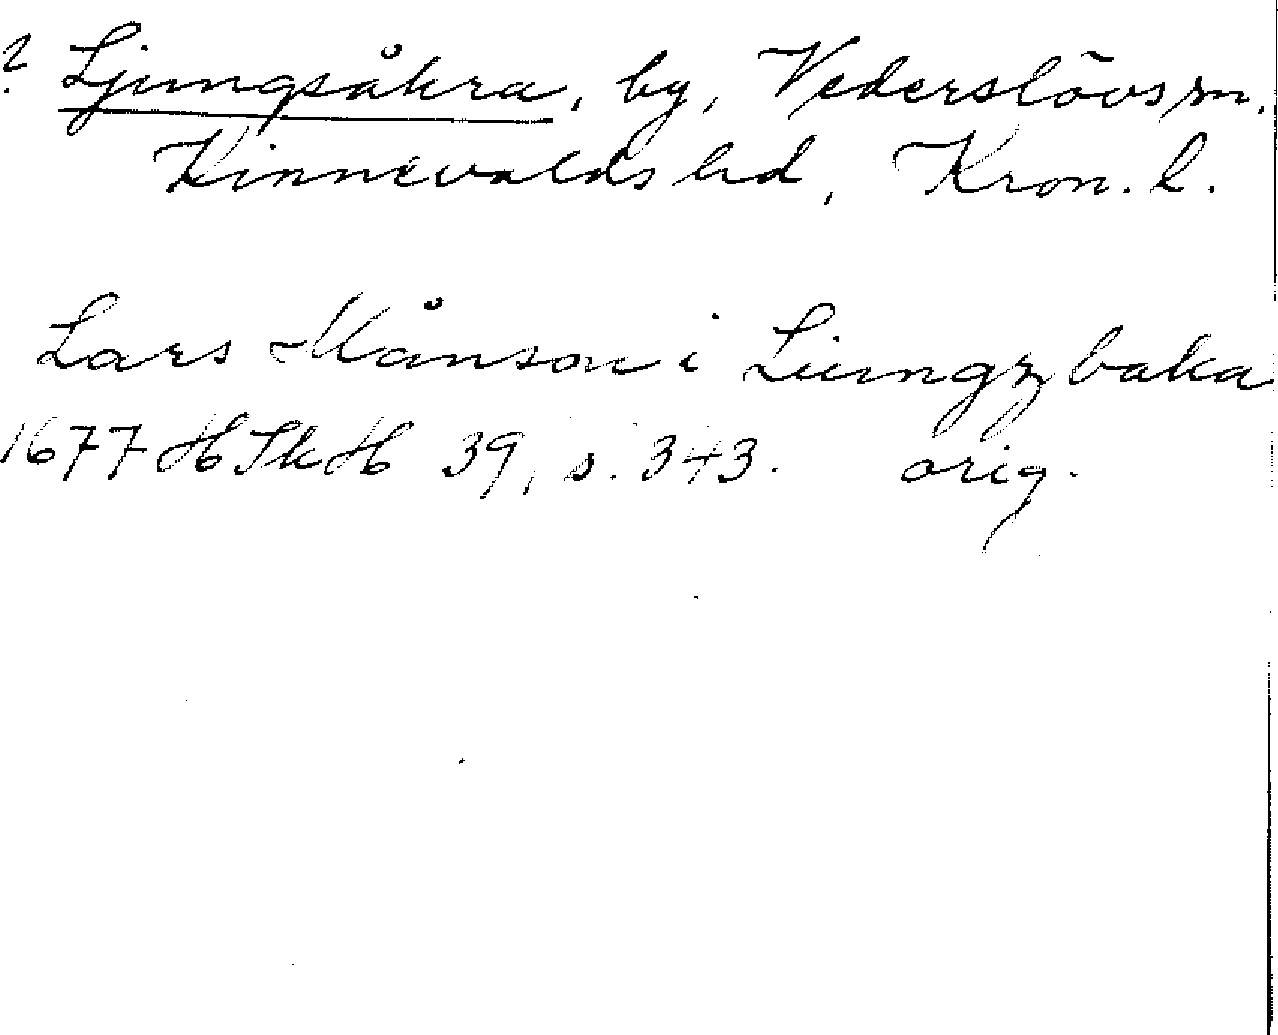 ? Ljungsåkra, by, Vederslövs sn.
Kinnevalds hd, Kron. l.
Lars Månson i Liungzbaka
1677 HSkH 39, s. 343. orig.